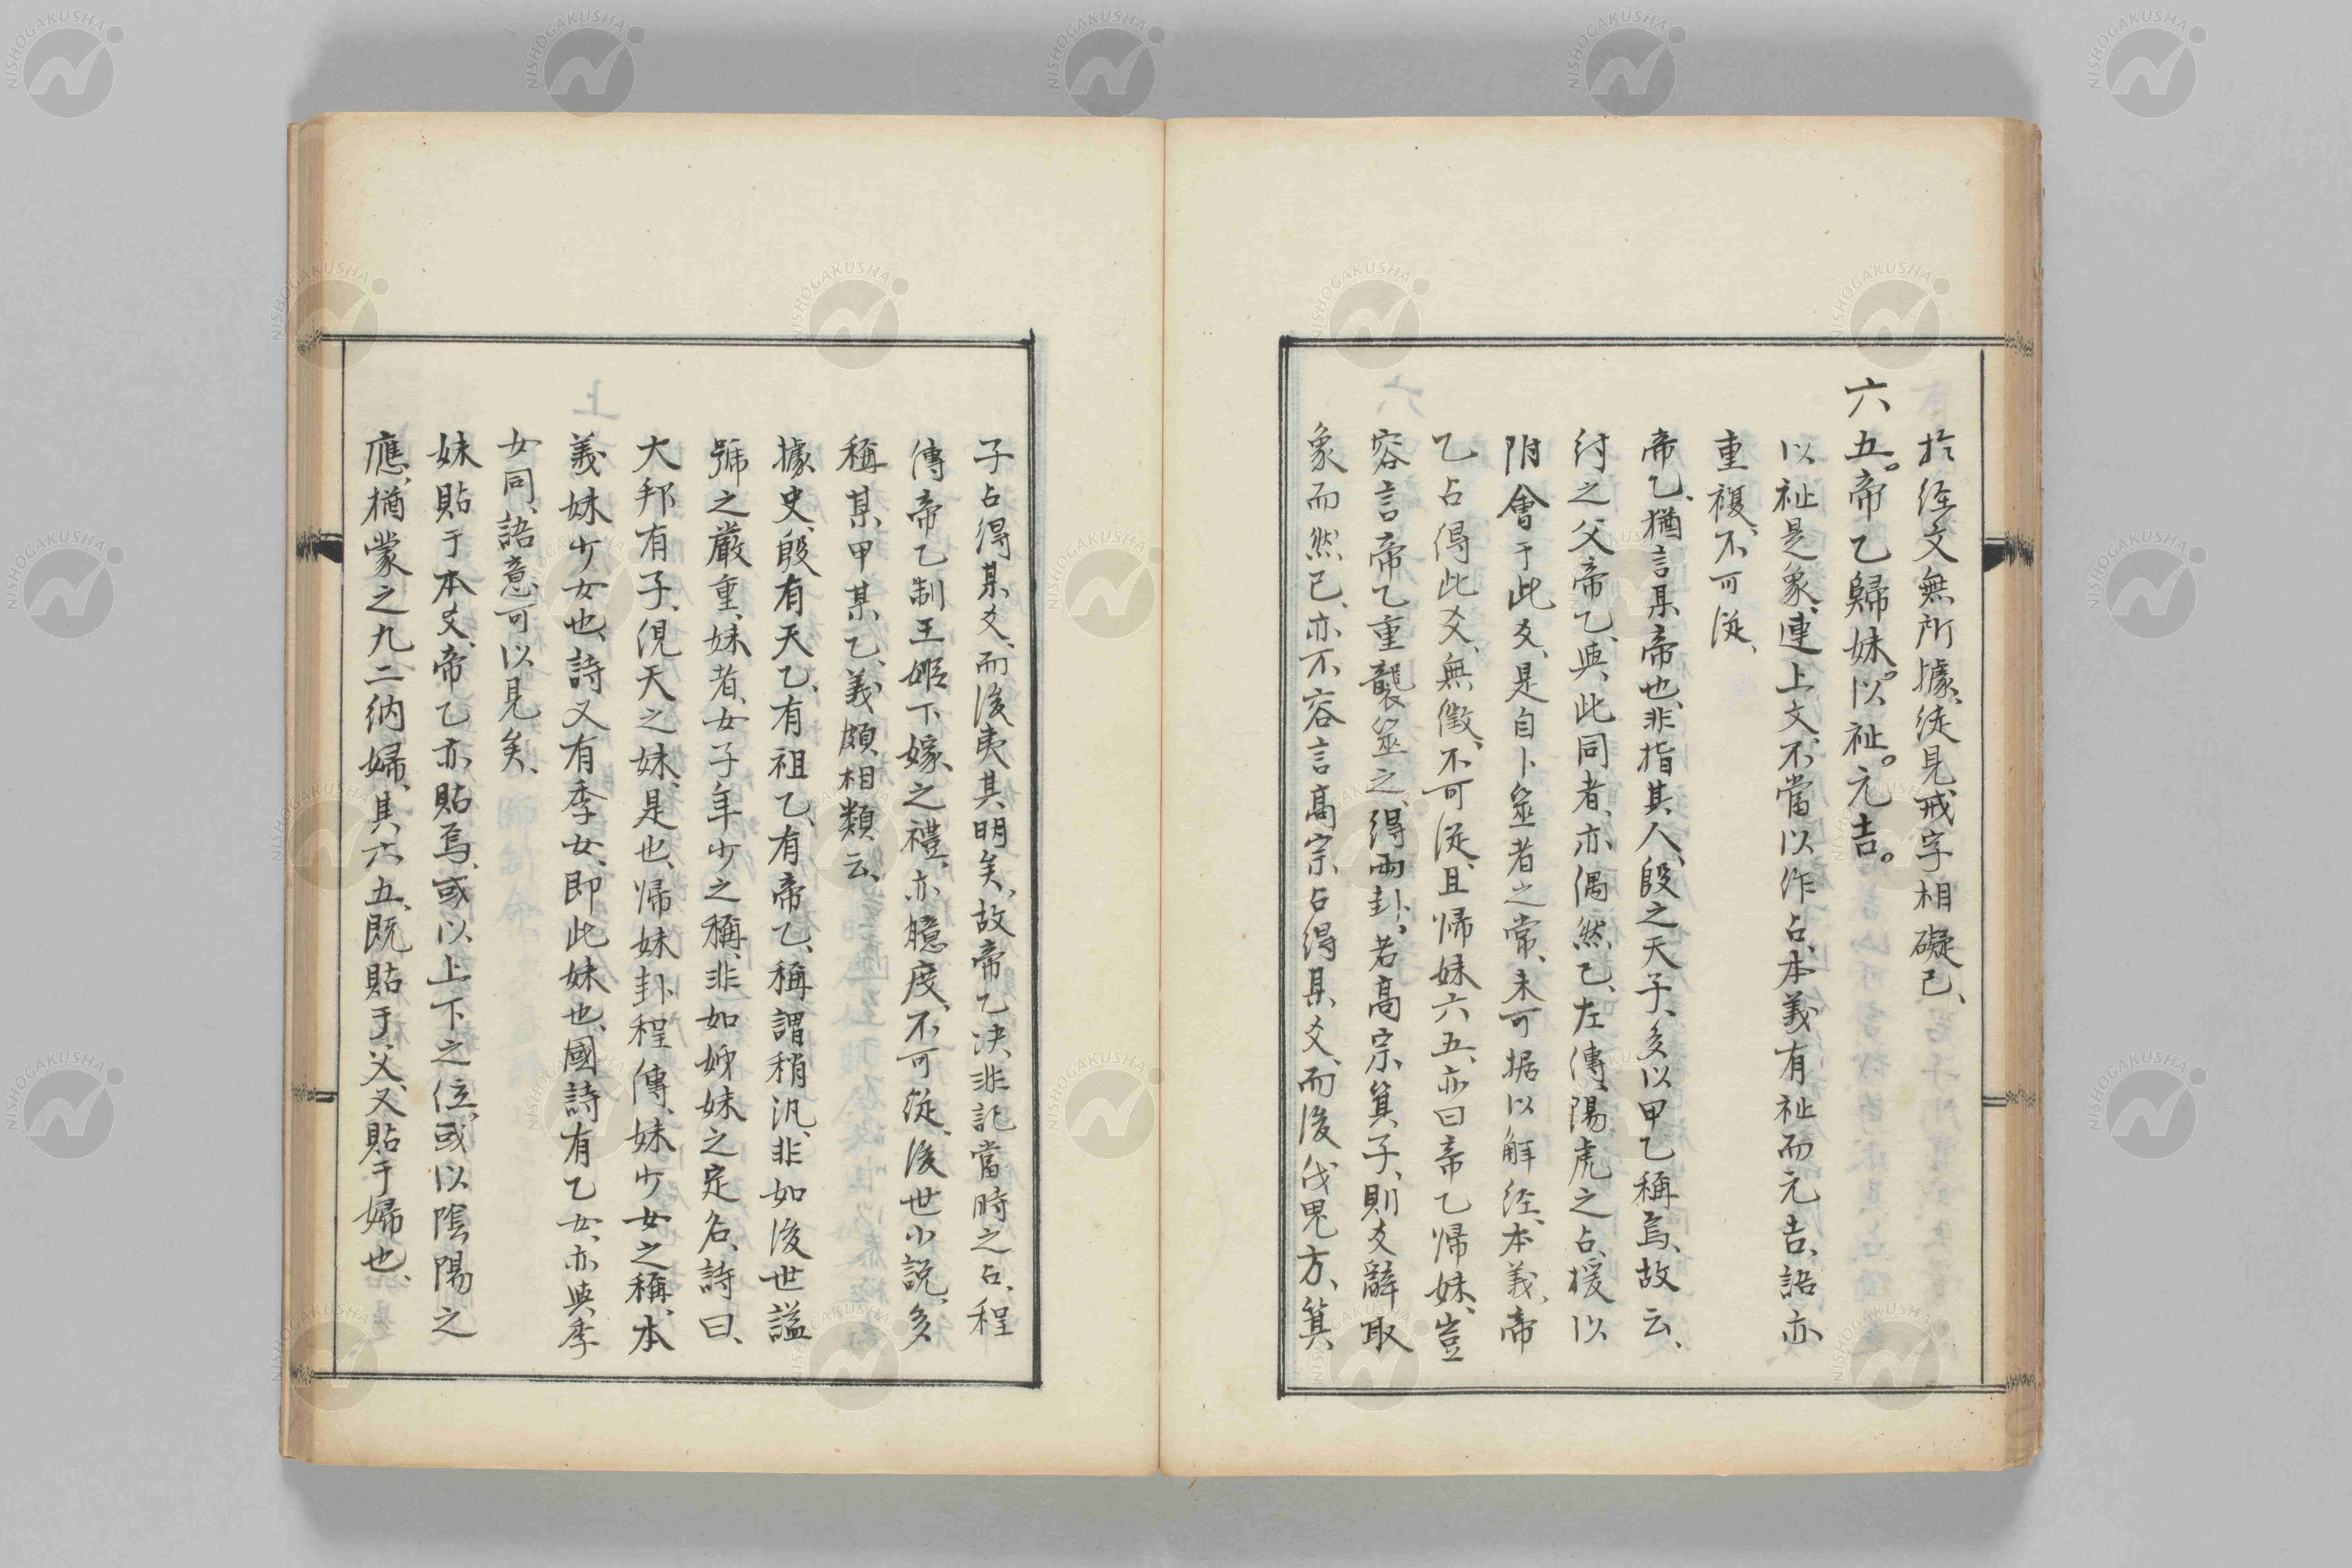 於経文無所據、徒見戒字相礙已、
六五。帝乙歸妹。以祉。元吉。
以祉是象、連上文、不當以作占、本義有祉而元吉、語亦
重複、不可從、
帝乙、猶言某帝也、非指其人、殷之天子、多以甲乙稱焉、故云、
紂之父帝乙、與此同者、亦偶然已、左傳、陽虎之占、援以
附會于此爻、是自卜筮者之常、未可据以解経、本義、帝
乙占得此爻、無徴、不可從、且帰妹六五、亦曰帝乙帰妹、豈
容言帝乙重襲筮之、得兩卦、若高宗箕子、則爻辭取
象而然已、亦不容言高宗占得某爻、而後伐鬼方、箕
子占得某爻、而後夷其明矣、故帝乙決非記當時之占、程
傳帝乙制王姫下嫁之禮、亦臆度、不可從、後世小説、多
稱某甲某乙、義頗相類云、
據史、殷有天乙、有祖乙、有帝乙、稱謂稍汎、非如後世謚
號之嚴重、妹者、女子年少之稱、非如姉妹之定名、詩曰、
大邦有子、俔天之妹、是也、帰妹卦程傳、妹少女之稱、本
義妹少女也、詩又有季女、即此妹也、國詩有乙女、亦與季
女同、語意可以見矣、
妹貼于本爻、帝乙亦貼焉、或以上下之位、或以陰陽之
應、猶蒙之九二納婦、其六五、既貼于父、又貼于婦也、
NISHOGAKUSHA